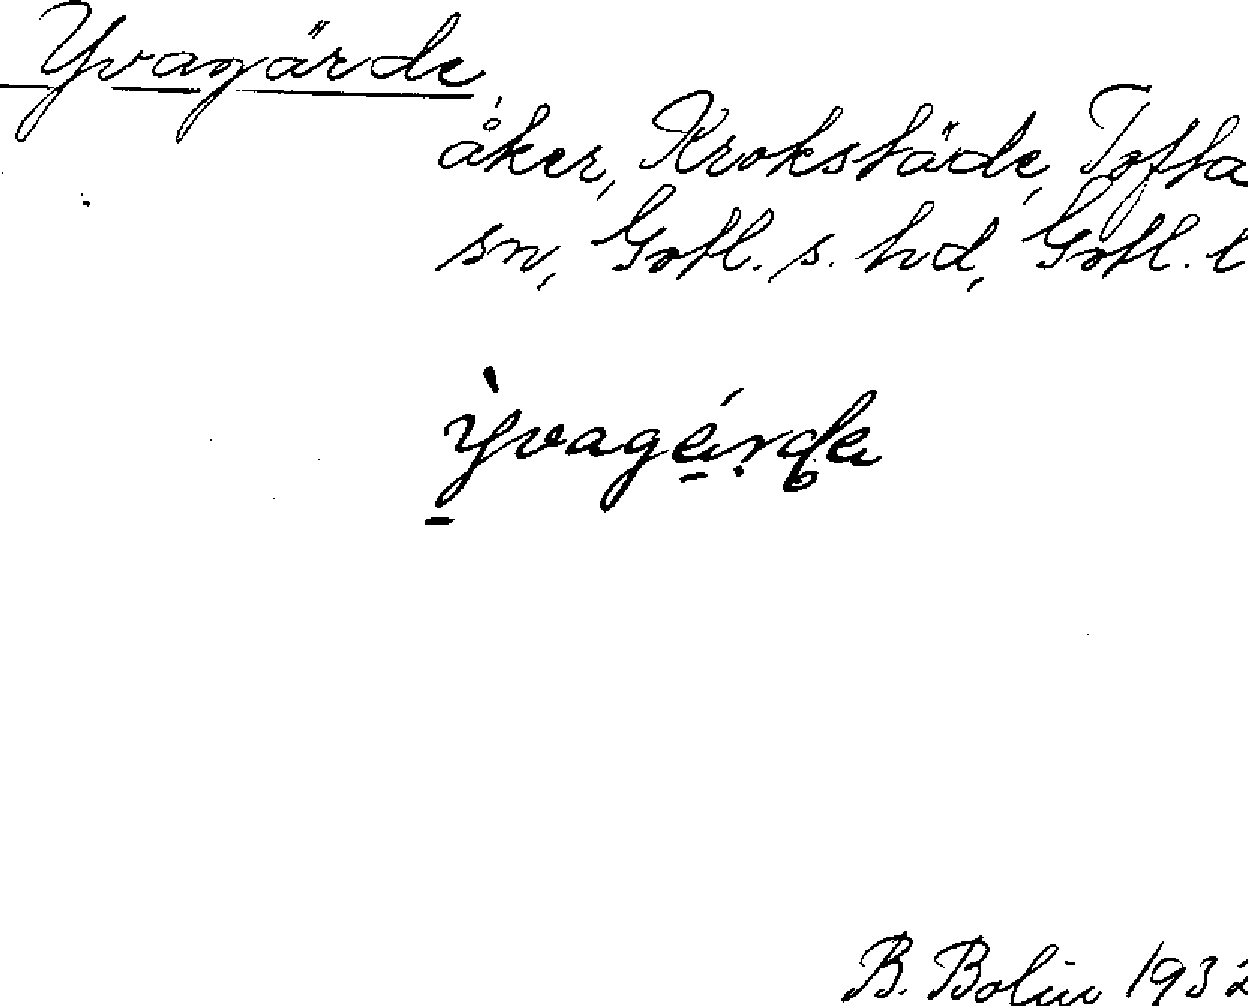 Yvagärde
åker, Krokstäde, Tofta
sn, Gotl. s. hd, Gotl. l
B. Bolin 1932